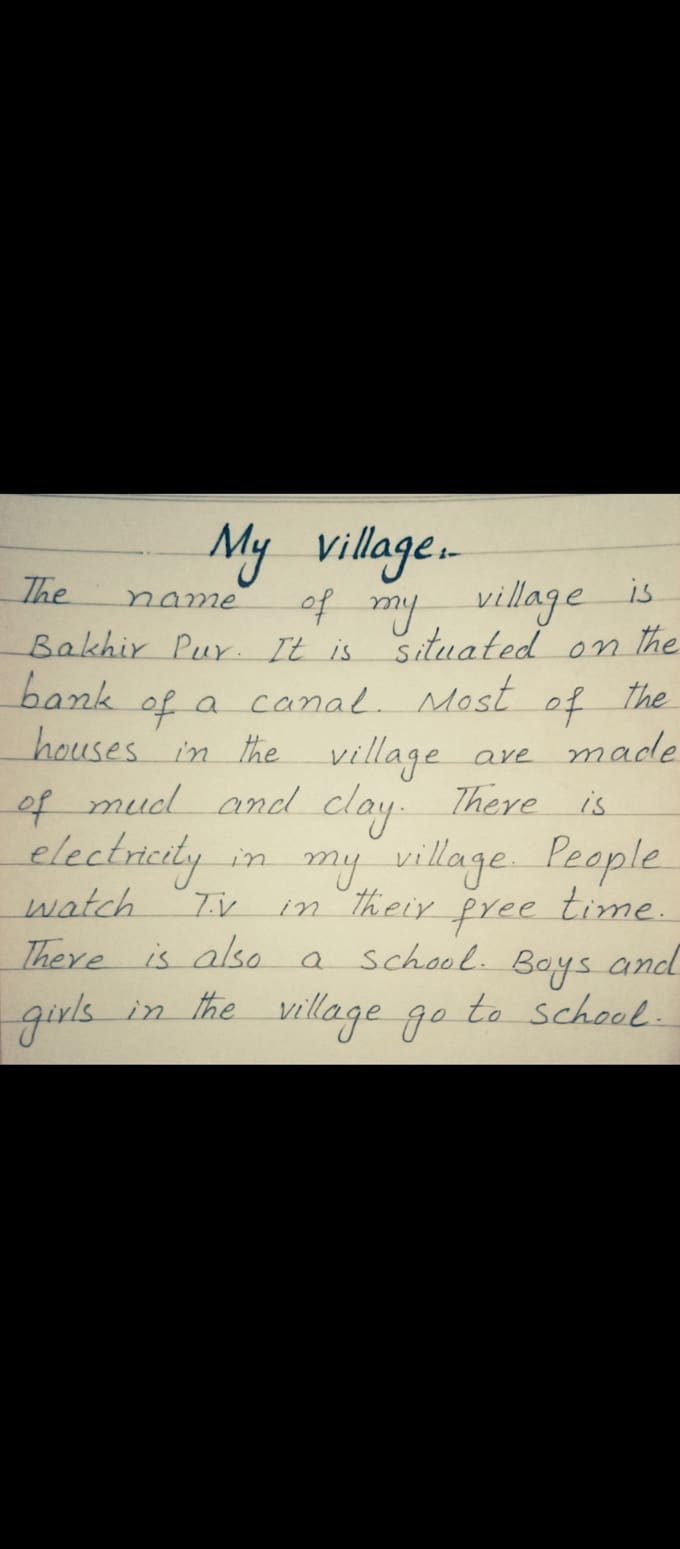 My village:-
The name of my village is
Bakhir Pur. It is situated on the
bank of a canal. Most of the
houses in the village are made
of mud and clay. There is
electricity in my village. People
watch T.v in their free time.
There is also a school. Boys and
girls in the village go to school.